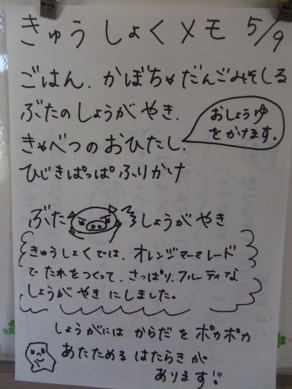 きゅうしょくメモ 5/9
ごはん、かぼちゃだんごみそしる
ぶたのしょうがやき、
きゃべつのおひたし、
おしょうゆ
をかけます。
ひじきぱっぱふりかけ
ぶた しょうがやき
きゅうしょくでは、オレンジマーマレード
でたれをつくって、さっぱり、フルーティな
しょうがやきにしました。
しょうがには からだを ポカポカ
あたためる はたらきが
あります!!